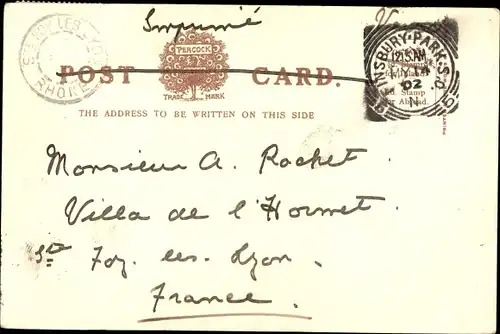 Imprimé
STE FOY LES LYON
RHONE
PEACOCK
TRADE MARK
POST CARD.
THE ADDRESS TO BE WRITTEN ON THIS SIDE
FINSBURY·PARK·S.O.
12.15 AM
02
N
Stamp
for Abroad.
Monsieur A. Rochet
Villa de l'Hormet
Ste Foy les Lyon
France